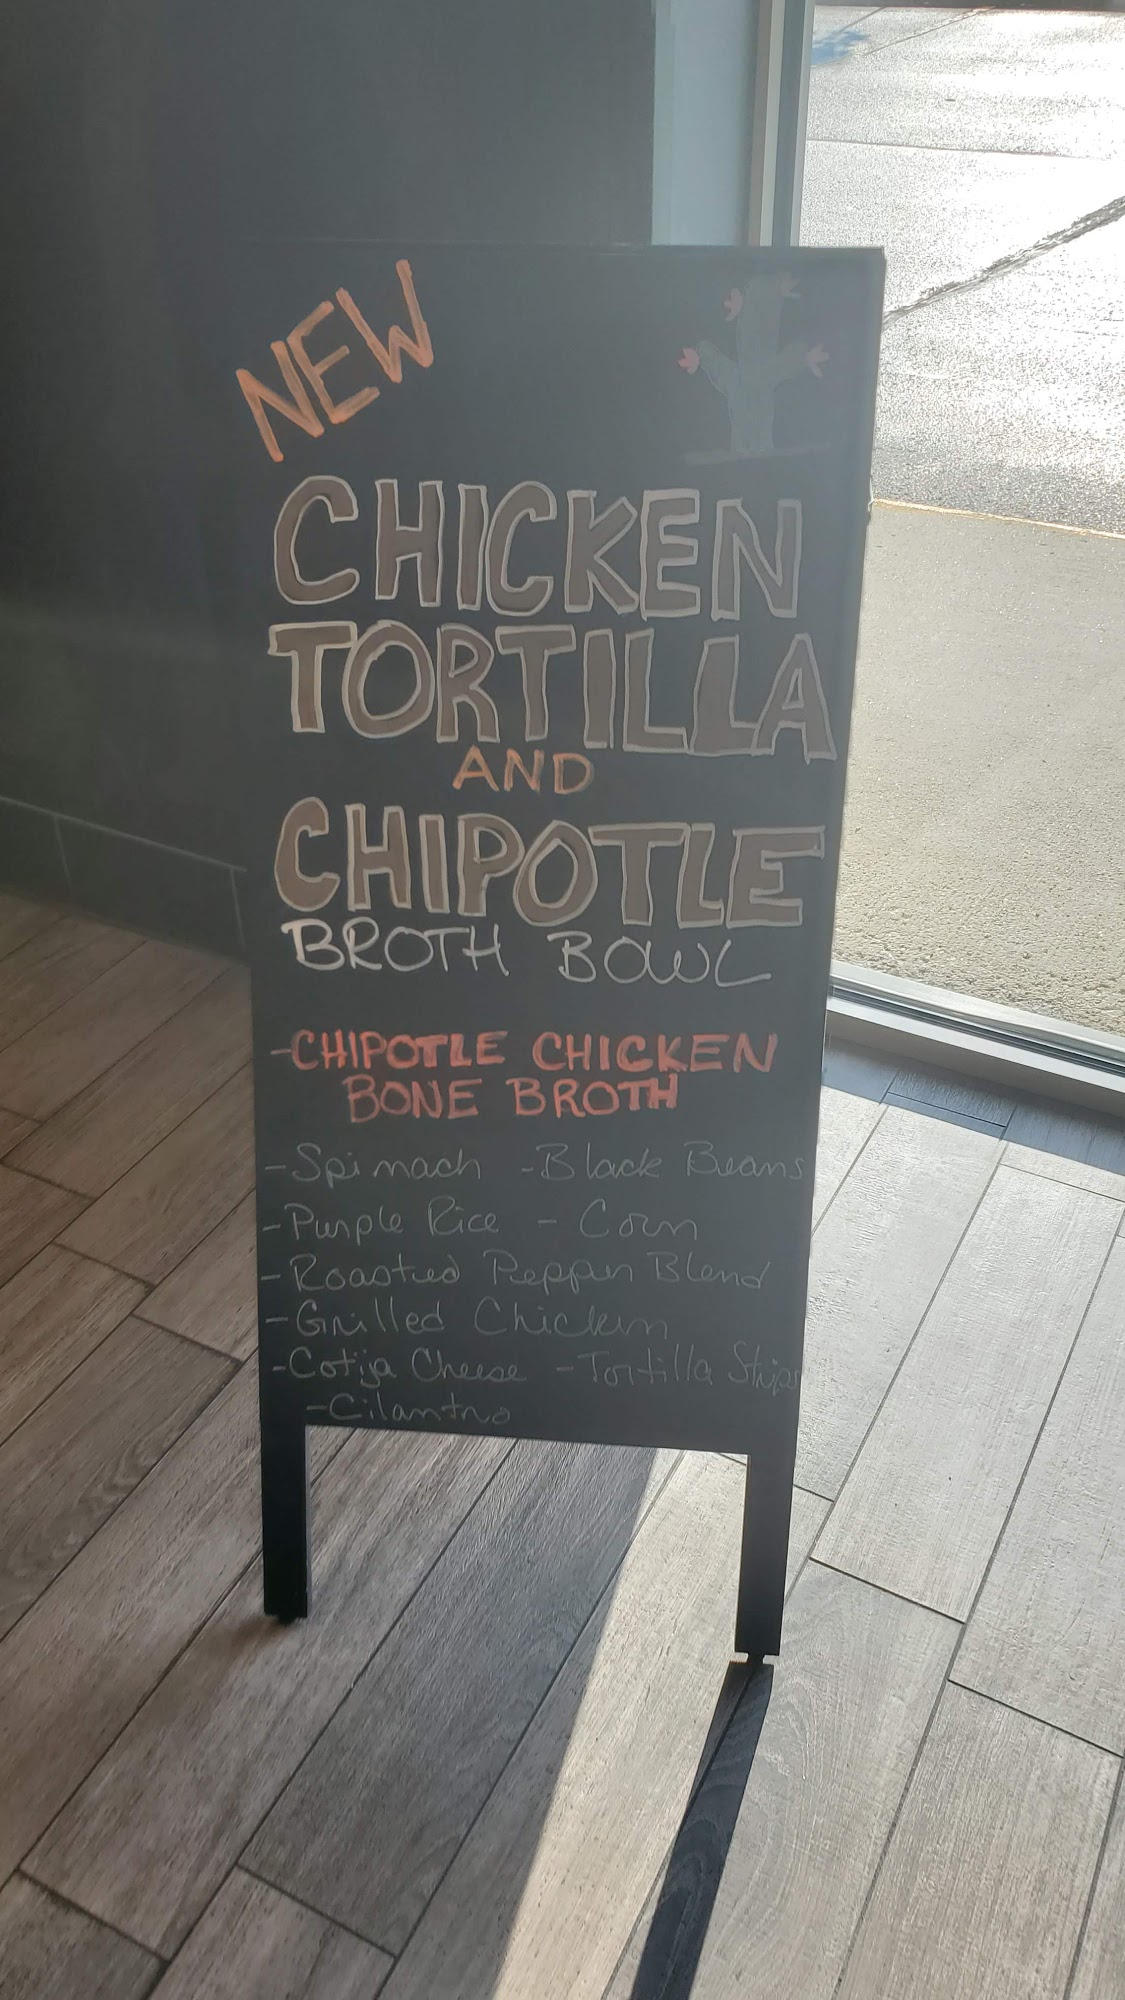 NEW
CHICKEN
TORTILLA
AND
CHIPOTLE
BROTH BOWL
-CHIPOTLE CHICKEN
BONE BROTH
-Spinach -Black Beans
-Purple Rice - Corn
-Roasted Pepper Blend
-Grilled Chicken
-Cotija Cheese -Tortilla Strips
-Cilantro